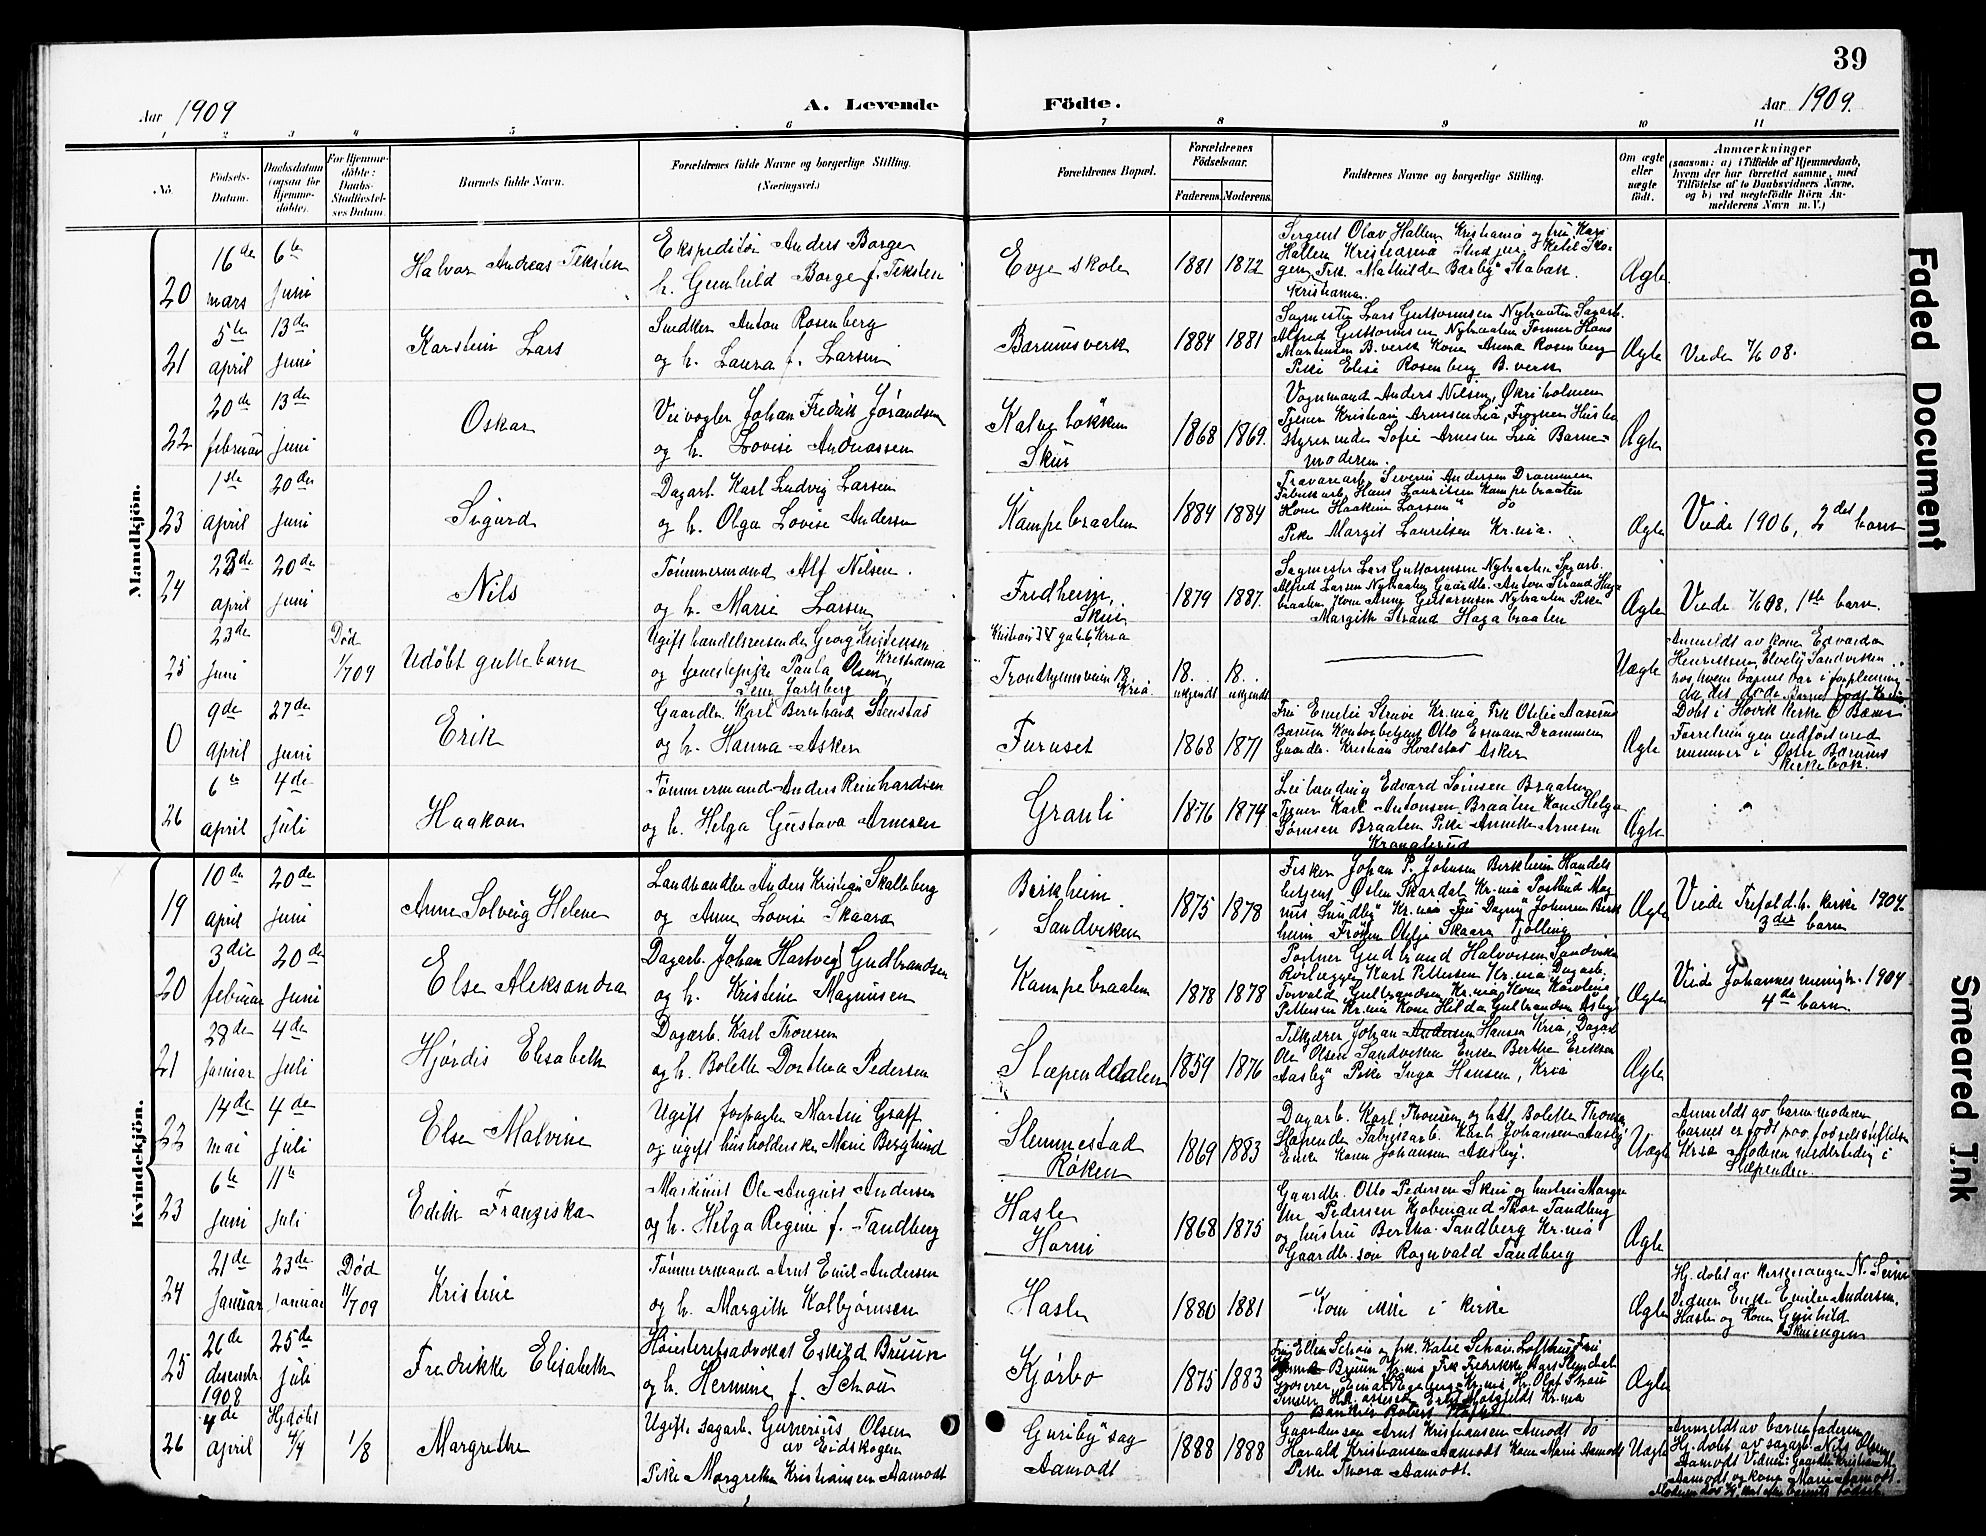 39
Aar 1909
A. Levende
Födte.
Aar 1909.
1 2 3 4 5 6 7 8 9 10 11
No.
Födsels-Datum.
Daabsdatum (ogsaa for Hjemme-döbte).
For Hjemme-döbte: Daabs-Stadfæstel-ses Datum.
Barnets fulde Navn.
Forældrenes fulde Navne og borgerlige Stilling.
(Næringsvei.)
Forældrenes Bopæl.
Forældrenes Födselsaar.
Faderens. Moderens.
Faddernes Navne og borgerlige Stilling.
Om ægte eller uægte födt.
Anmærkninger
(saasom: a) i Tilfælde af Hjemmedaab,
hvem der har forrettet samme, med
Tilföielse af to Daabsvidners Navne,
og b) ved uægtefödte Börn An-
melderens Navn m. V.)
Mandkjön.
20
16de mars
6te juni
Halvor Andreas Teksten
Ekspeditör Anders Borge
h. Gunhild Borge f. Teksten
Evje skole
1881 1872
Sergent Olav Hallem Kristiania og fru Kari
Hallem Kristiania Stud. jur. Ketil Sko-
gen, Frk. Mathilde Bærby Stabæk.
Kristiania.
Ægte
21
5te april
13de juni
Karstein Lars
Snedker Anton Rosenberg
og h. Laura f. Larsen
Bærumsverk
1884 1881
Sagmester Lars Guttormsen Nybraaten Sagarb.
Alfred Guttormsen Nybraaten Former Hans
Martinsen B. verk Kone Anna Rosenberg
Pike Elise Rosenberg B. verk
Ægte
Viede 7/6 08.
22
20de februar
13de juni
Oskar
Veivogter Johan Fredrik Jörandsen
og h. Lovise Andreassen
Kalveløkken
Skui
1868 1869.
Vognmand Anders Nilsen, Økriholmen
Tjener Kristian Arnesen Lia, Frogner Husbe
styrerinden Sofie Arnesen Lia Barne-
moderen.
Ægte
23
1ste april
20de juni
Sigurd
Dagarb. Karl Ludvig Larsen
og h. Olga Lovise Andersen
Kampebraaten
1884 1884
Travarearb. Severin Andersen Drammen
Fabrikarb. Hans Lauritsen Kampebraaten
Kone Haakine Larsen do
Pike Margit Lauritsen Kr.nia.
Ægte
Viede 1906, 2det barn
24
23de april
20de juni
Nils
Tømmermand Alf Nilsen.
og h. Marie Larsen
Fredheim,
Skui
1879 1887.
Sagmester Lars Guttormsen Nybraaten Sagarb.
Alfred Larsen Nybraaten Gaardbr. Anton Strand Haga
braaten, Kone Anne Guttormsen Nybraaten Pike
Margith Strand Hagabraaten
Ægte
Viede 7/6 08, 1ste barn.
25
23de juni
Død 1/7 09
Udøbt guttebarn
Ugift handelsreisende Georg Kristensen
Kristiania
og tjenestepike Paula Olsen,
Sem Jarlsberg
Kristian IV gate 6, Kria
Trondhjemsveien 18 Kria
18.. 18..
ukjendt ukjendt
Uægte
Anmeldt av kone Edvarda
Henriksen, Elvely Sandviken
hos hvem barnet var i forpleining
da det døde Barnet født Kria
0
9de april
27de juni
Erik
Gaardbr. Karl Bernhard Stenstad
og h. Hanna Asker
Furuset
1868 1871
Fru Emelie Struve Kr.nia Frk Otelie Aaserud
Bærum Kontorbetjent Otto Esman Drammen
Gaardbr. Kristian Hvalstad Asker
Ægte
Døbt i Høvik kirke Ø Bærum
Forretningen indført med
nummer i Østre Bærums
Kirkebok.
26
6te april
4de juli
Haakon
Tømmermand Anders Reinhardsen
og h. Helga Gustava Arnesen
Granli
1876 1874
Leilending Edvard Simsen Braaten
Tjener Karl Antonsen Braaten Kone Helga
Simsen Braaten Pike Annette Arnesen
Kranglerud
Ægte
Kvindekjön.
19
10de april
20de juni
Anne Solveig Helene
Landhandler Anders Kristian Skalleberg
og Anne Lovise Skaara
Berkheim
Sandviken
1875 1878
Fisker Johan P. Johnsen Berkheim Handels
betjent Østen Skardal Kr.nia Postbud Mag
nus Sundby Kr.nia Fru Dagny Johnsen Berk
heim Frøken Otelie Skaara Tjölling
Ægte
Viede Trefold.h. kirke 1904.
3die barn
20
3die februar
20de juni
Else Aleksandra
Dagarb. Johan Hartvig Gudbrandsen
og h. Kristine Magnusen
Kampebraaten
1878 1878
Portner Gudbrand Halvorsen, Sandviken
Rørlægger Karl Pettersen Kr.nia Dagarb.
Torvald Gulbrandsen Kr.nia, Kone Karoline
Pettersen Kr.nia Kone Hilda Gulbrandsen Aasby
Ægte
Viede Johannes menigh. 1904
4de barn
21
28de januar
4de juli
Hjørdis Elisabeth
Dagarb. Karl Thoresen
og h. Bolette Dorthea Pedersen
Slæpenddalen
1859 1876
Tilkjører Johan Andersen Hansen Kria, Dagarb
Ole Olsen Sandviken Enke Berthe Eriksen
Aasby Pike Inga Hansen, Kria
Ægte
22
14de mai
4de juli
Else Malvine
Ugift forpagter Martin Graff
og ugift husholderske Marie Berglund
Slemmestad
Røken
1869 1883
Dagarb. Karl Thoresen og hst. Bolette Thoresen
Slæpende Fabrikarb. Karl Johansen Aasby
Enke Karen Johansen Aasby.
Uægte
Anmeldt av barnemoderen
barnet er født paa fødselsstiftelsen
Kria Moderen midlertidig i
Slæpenden
23
6te juni
11te juli
Edith Franziska
Maskinist Ole August Andersen
og h. Helga Regine f. Tandberg
Hasle
Horni
1868 1875
Gaardbr. Otto Pedersen Skui og hustru Margre
the Pedersen Kjøbmand Thor Tandberg
og hustru Bertha Tandberg Kr.nia
Gaardbr. søn Ragnvald Tandberg
Ægte
24
21de januar
23de januar
Død 11/7 09
Kristine
Tømmermand Arnt Emil Andersen
og h. Margith Kolbjørnsen
Hasle
1880 1881
Kom ikke i kirke
Ægte
Hj. døbt av kirkesanger N. Seim
Vidner Enke Emilie Andersen,
Hasle og Kone Gunhild
Skuiengen
25
26de desembr. 1908
25de juli
Fredrikke Elisabeth
Høiesteretsadvokat Eskild Bruun
og h. Hermine f. Schou
Kjørbo
1875 1883
Fru Ellen Schou og frk. Katie Schou Lofthus Fru
Bruun Kr.nia Frk Fredrikke
Grosserer Einar Egeberg Kr.nia Hr. Olaf Schou
Kr.nia
Bankier Robert
Ægte
26
4de april
Hj.døbt 4/4
1/8
Margrethe
Ugift sagarb. Gunerius Olsen
av Eidskogen
Pike Margrethe Kristiansen Aamodt
Guriby sag
Aamodt
1888 1888
Gaardm.søn Arnt Kristiansen Aamodt do
Harald Kristiansen Aamodt Kone Marie Aamodt
Pike Thora Aamodt.
Uægte
Anmeldt av barnefaderen
Hj. døbt av sagarb. Nils Olsen
Aamodt Vidner: Gaardbr. Kristian M.
Aamodt og kone Marie Aamodt.
Faded Document
Smeared Ink